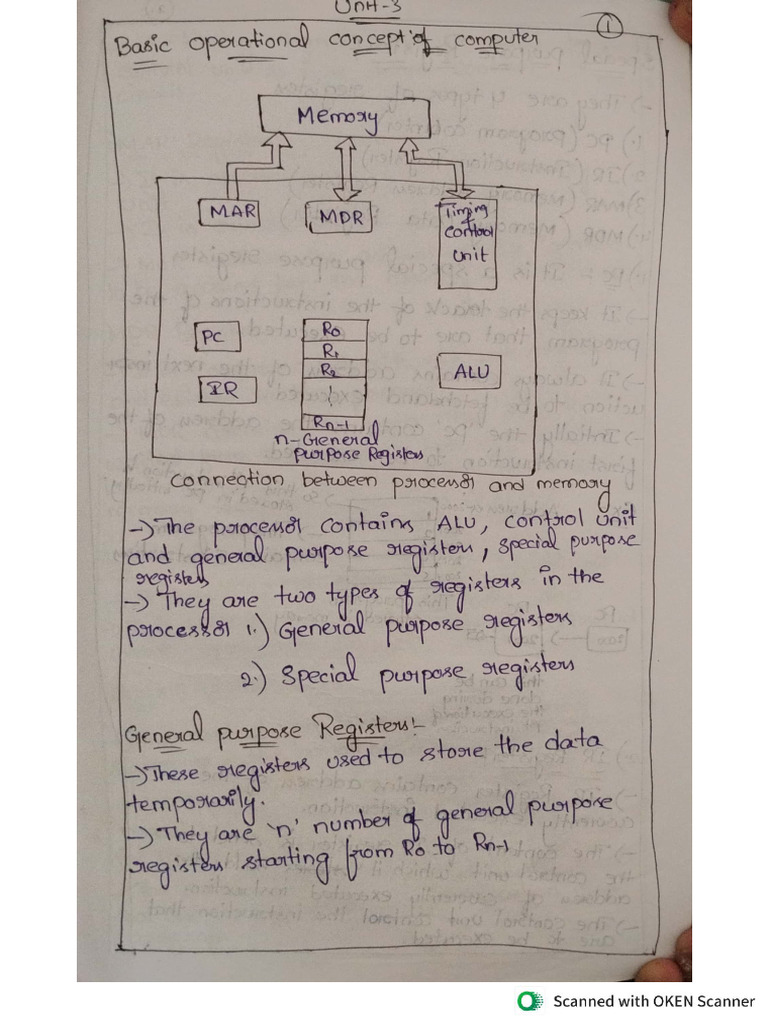 Unit-3
1
Basic operational concept of computer
Memory
MAR
MDR
Timing
&
control
unit
PC
IR
R0
R1
R2
Rn-1
ALU
n-General
purpose Registers
connection between processor and memory
-> The processor contains ALU, control unit
and general purpose registers, special purpose
registers
-> They are two types of registers in the
processor 1.) General purpose registers
2.) Special purpose registers
General purpose Registers:-
-> These registers used to store the data
temporarily.
-> They are 'n' number of general purpose
registers starting from R0 to Rn-1
Scanned with OKEN Scanner